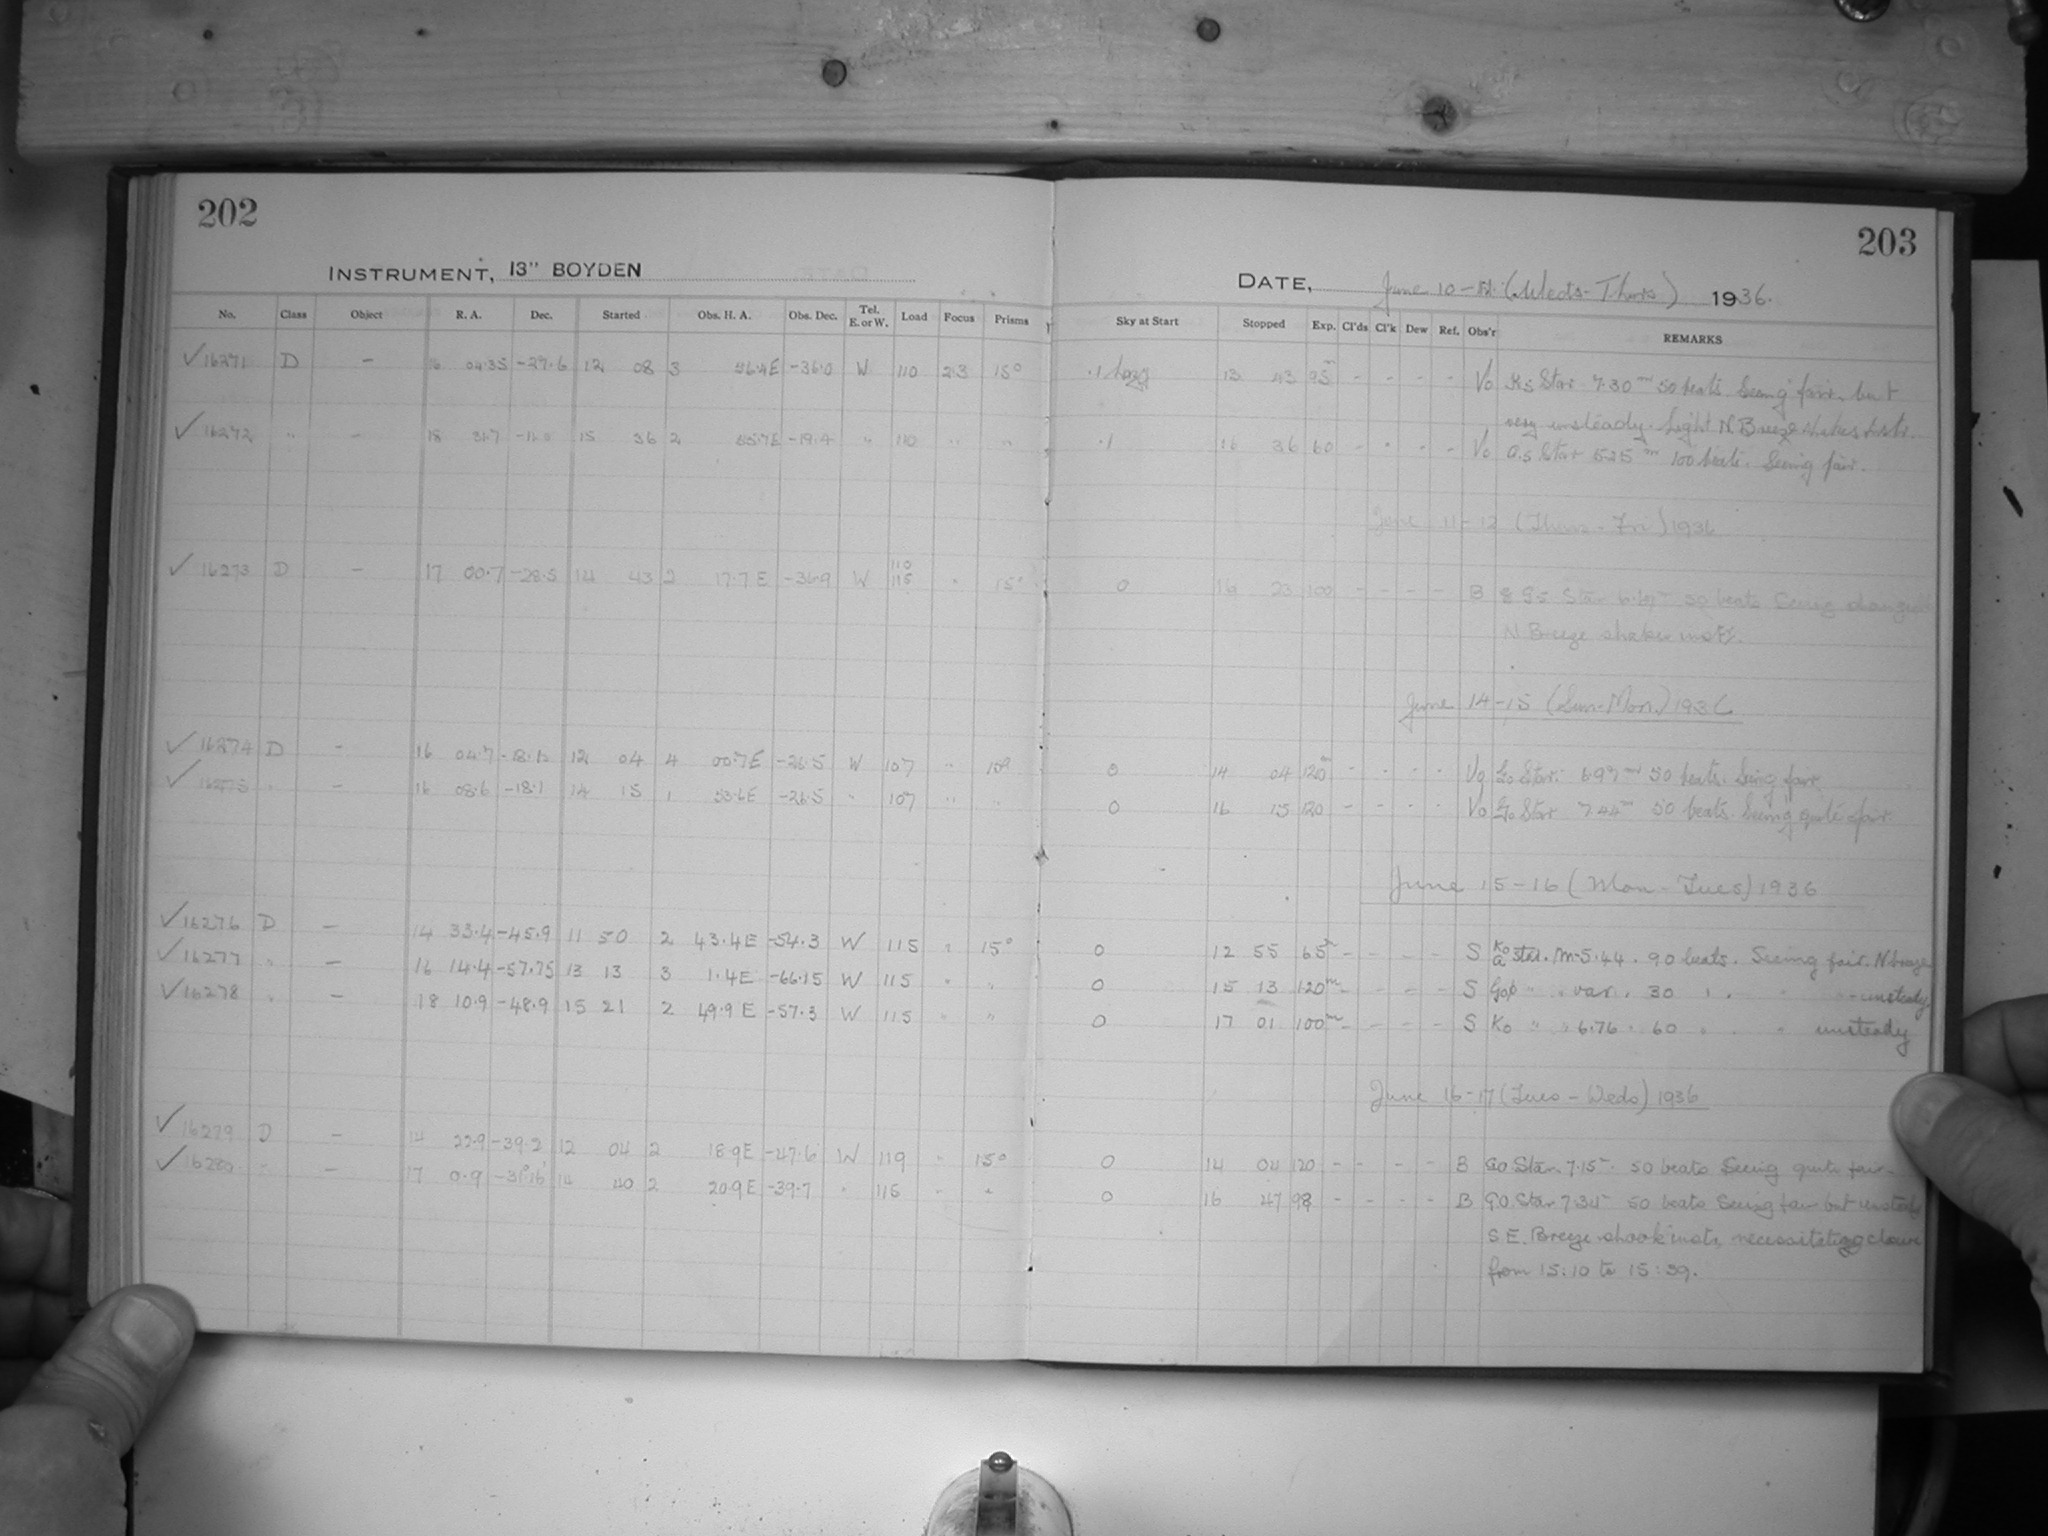 202
203
INSTRUMENT, 13" BOYDEN
DATE, June 10- (Weds-Thurs) 1936.
No. Class Object R. A. Dec. Started Obs. H. A. Obs. Dec. Tel. E. or W. Load Focus Prisms Sky at Start Stopped Exp. Cl'ds Cl'k Dew Ref. Obs'r REMARKS
✓16271 D - 16 04.35 -27.6 12 08 3 56.4E -36.0 W 110 2.3 15° .1 hazy 13 43 95m - - - - Vo K5 Star 7.30m 50 beats. Seeing fair, but
very unsteady. Light N Breeze shakes Instr.
✓16272 " - 18 31.7 15 36 2 55.7E -19.4 " 110 " " .1 16 36 60 - - - - Vo 100 beats. Seeing fair.
June 11-12 (Thurs-Fri) 1936
✓16273 D - 17 00.7 -28.5 14 43 2 17.7E -36.9 W 110 115 " 15° 0 16 23 100 - - - - B G5 Star 50 beats Seeing
N Breeze shakes instr.
June 14-15 (Sun-Mon) 1936
✓16274 D - 16 04.7 12 04 4 00.7E -26.5 W 107 " 0 14 04 120m - - - - Vo Go Star. 6.97m 50 beats. Seeing fair
✓16275 " - 16 08.6 -18.1 14 15 1 53.6E -26.5 " 107 " " 0 16 15 120 - - - - Vo Go Star 7.44m 50 beats. Seeing quite fair
June 15-16 (Mon-Tues) 1936
✓16276 D - 14 33.4 -45.9 11 50 2 43.4E -54.3 W 115 " 15° 0 12 55 65m - - - - S Ko star. m-5.44. 90 beats. Seeing fair. N breeze
✓16277 " - 16 14.4 -57.75 13 13 3 1.4E -66.15 W 115 " " 0 15 13 120m - - - - S Gop " " var. 30 " " " unsteady
✓16278 " - 18 10.9 -48.9 15 21 2 49.9E -57.3 W 115 " " 0 17 01 100m - - - - S Ko " " 6.76 " 60 " " " unsteady
June 16-17 (Tues-Weds) 1936
✓16279 D - 14 22.9 -39.2 12 04 2 18.9E -47.6 W 119 " 15° 0 14 04 120 - - - - B Go Star 7.15m. 50 beats Seeing quite fair
✓16280 " - 17 0.9 14 40 2 20.9E -39.7 " 116 " " 0 16 47 98 - - - - B GO Star 7.34m 50 beats Seeing fair but unsteady
S.E. Breeze shook instr, necessitating closure
from 15:10 to 15:39.